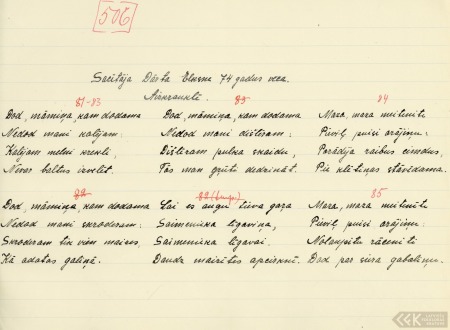 506
Sacītāja Dārta Elksne 74 gadus veca.
Aizkrauklē.
81-83
Dod, māmiņa, kam dodama
Nedod mani kalējam:
Kalējam melni krekli,
Nevar baltus izvelēt.
82
Dod, māmiņa, kam dodama
Nedod mani skroderam:
Skroderam tik vien maizes,
Kā adatas galiņā.
83
Dod, māmiņa, kam dodama
Nedod mani dišleram:
Dišleram pulka skaidu,
Tās man grūti dedzināt.
82 (turp.)
Lai es augu tieva gaŗa
Saimenieka līgaviņa,
Saimenieka līgavai
Daudz maizītes apcienknē.
84
Maza, maza meitenīte
Pieviļ puisi arājiņu:
Parādīja raibus cimdus,
Pie klētiņas stāvēdama.
85
Maza, maza meitenīte
Pieviļ puisi arājiņu:
Nolaupītu rācenīti
Dod par siera gabaliņu.